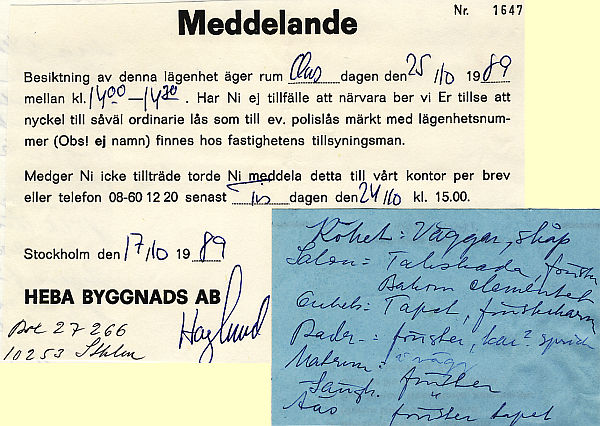 Meddelande
Nr. 1647
Besiktning av denna lägenhet äger rum Ons dagen den 25/10 1989
mellan kl. 14.00–14.30. Har Ni ej tillfälle att närvara ber vi Er tillse att
nyckel till såväl ordinarie lås som till ev. polislås märkt med lägenhetsnum-
mer (Obs! ej namn) finnes hos fastighetens tillsyningsman.
Medger Ni icke tillträde torde Ni meddela detta till vårt kontor per brev
eller telefon 08-60 12 20 senast Tis dagen den 24/10 kl. 15.00.
Stockholm den 17/10 1989
HEBA BYGGNADS AB
Haglund
Box 27 266
10253 Sthlm
Köket = Väggar, skåp
Salon = Takskada, fönster
Bakom elementet
Tapet,
fönster,
Matrum =
fönster
fönster tapet